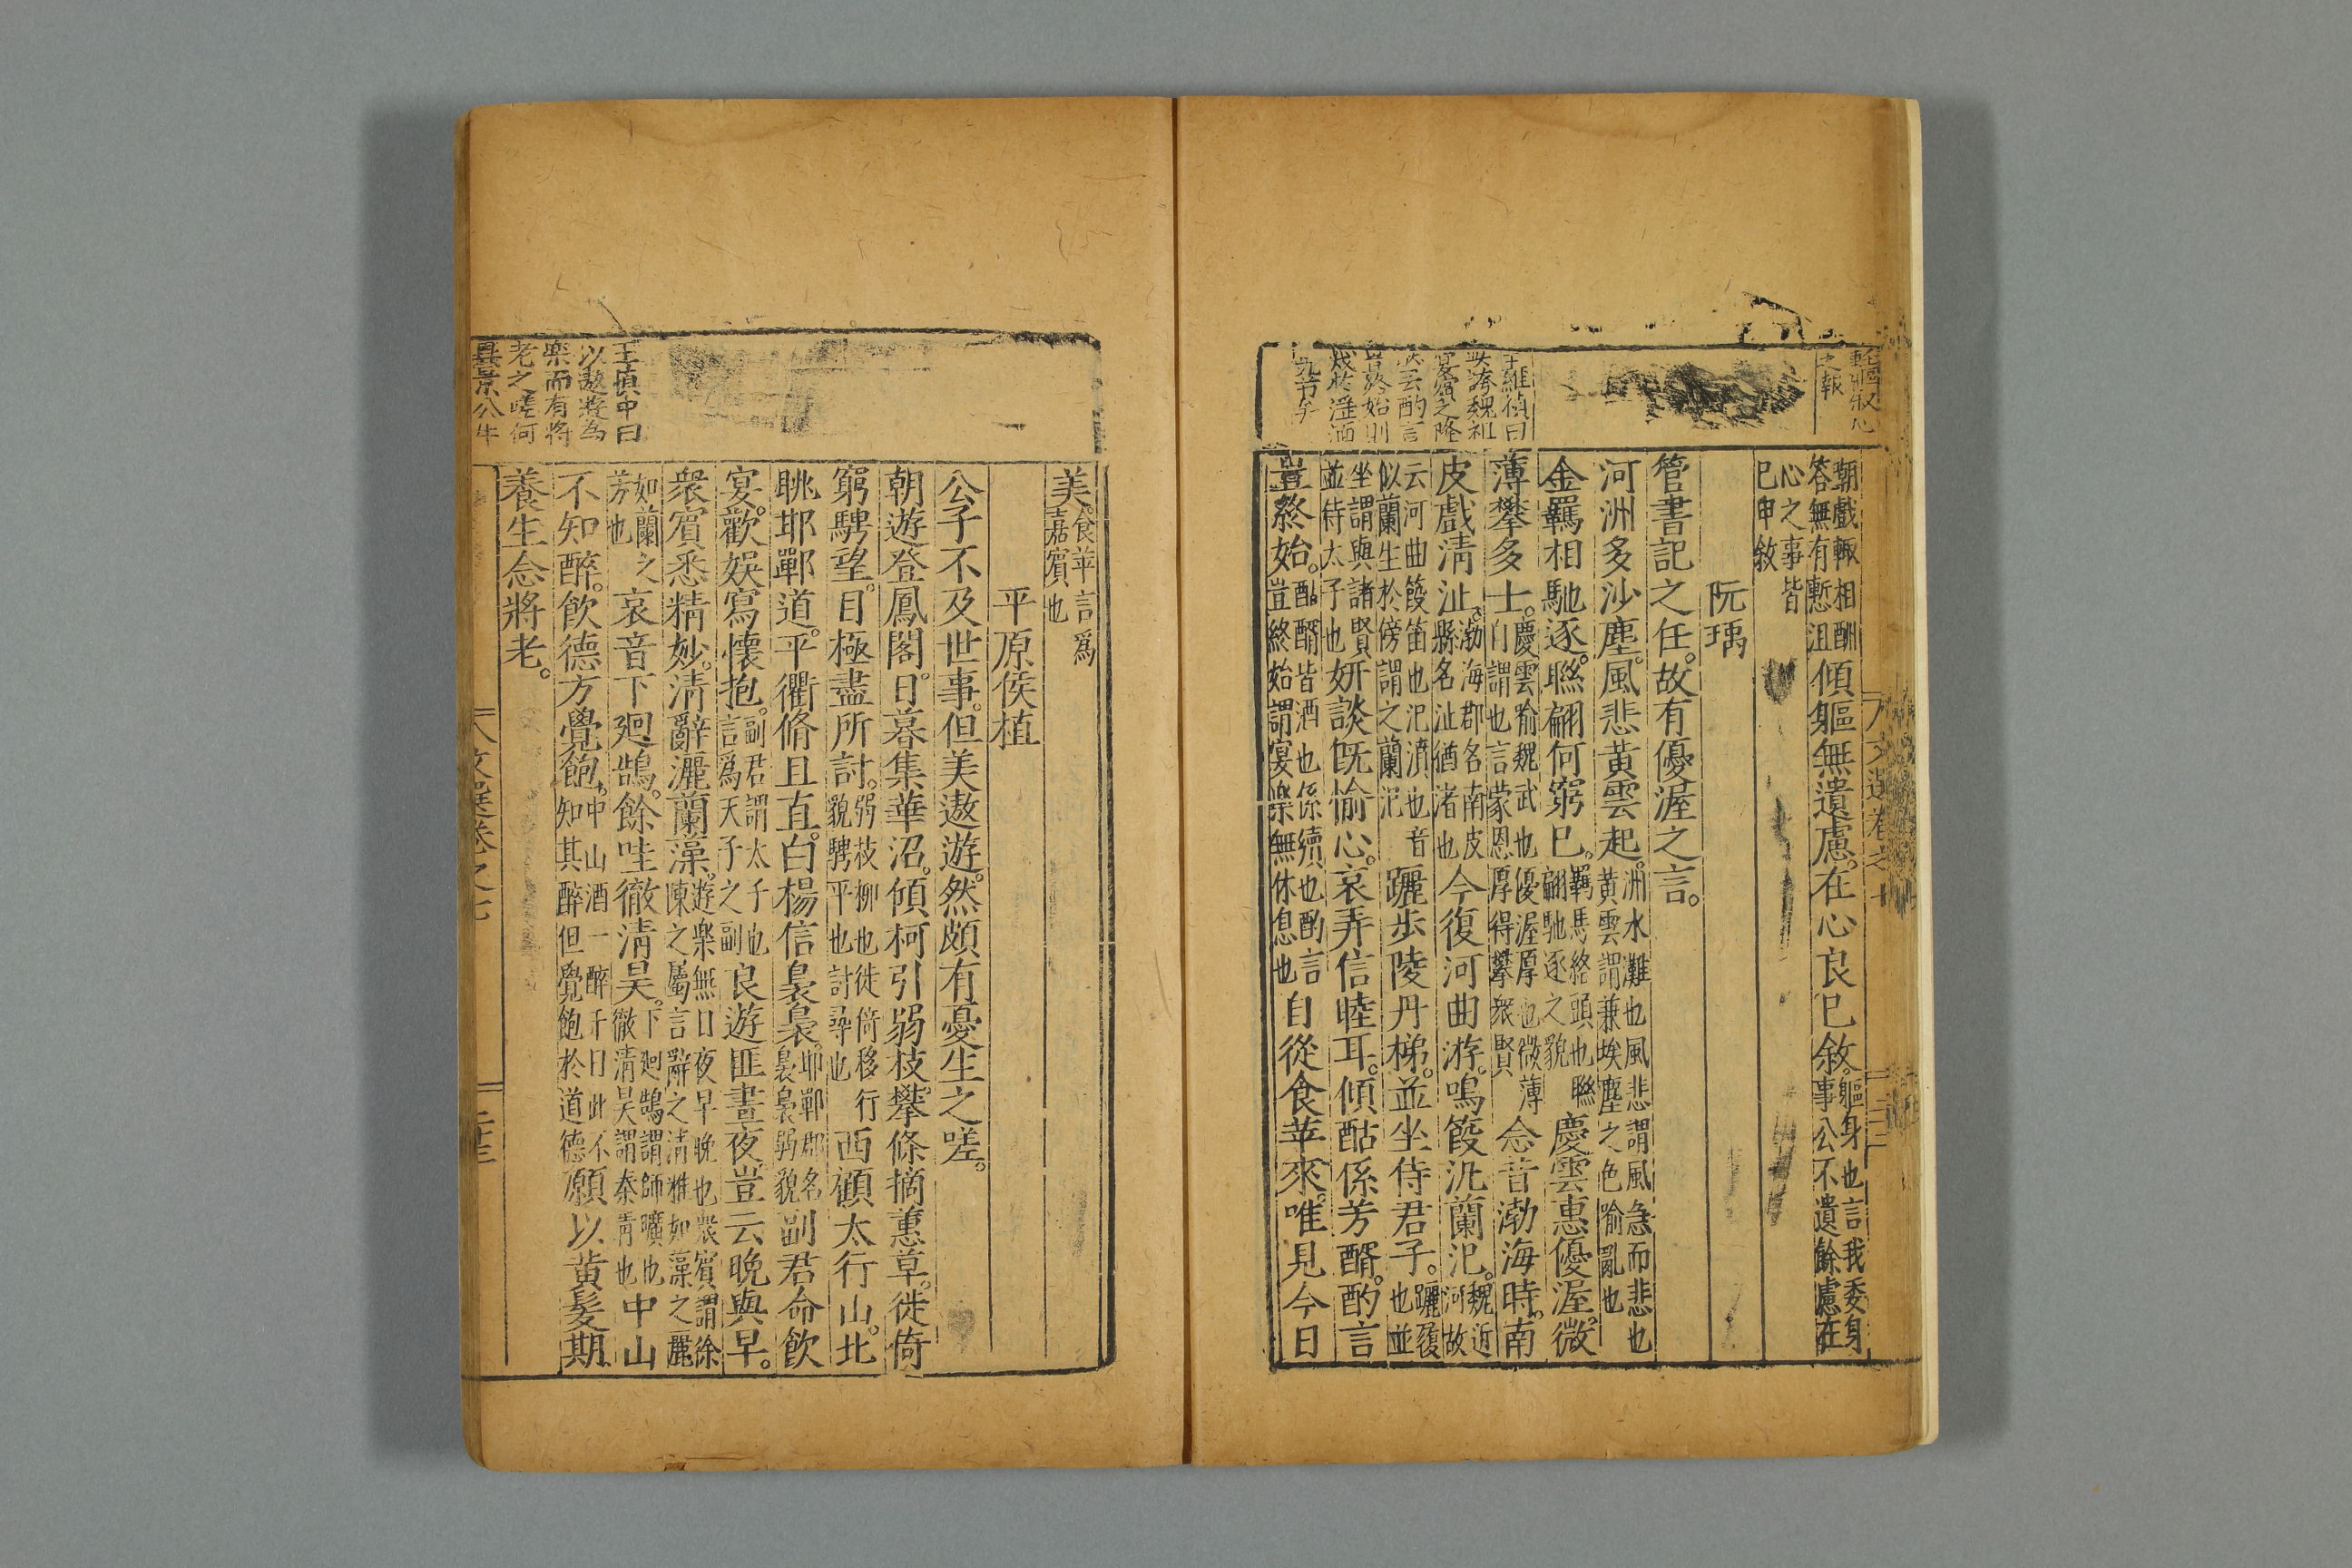 朝戲輙相酬
答無有慙沮傾軀無遺慮。在心良巳敘。軀身也言我委身
事公不遺餘慮在
心之事皆
巳申敘
阮瑀
管書記之任。故有優渥之言。
河洲多沙塵。風悲黄雲起。洲水灘也風悲謂風急而悲也
黄雲謂兼埃塵之色喻亂也
金羈相馳逐。聮翩何窮巳。羈馬絡頭也聮
翩馳逐之貌慶雲惠優渥。微
薄攀多士。慶雲喻魏武也優渥厚也微薄
自謂也言蒙恩厚得攀衆賢念昔渤海時。南
皮戲淸沚。渤海郡名南皮
縣名沚猶渚也今復河曲游。鳴葭汎蘭汜。魏近
河故
云河曲葭笛也汜濆也音
似蘭生於傍謂之蘭汜躧歩陵丹梯。並坐侍君子。躧履
也並
坐謂與諸賢
並侍太子也妍談旣愉心。哀弄信睦耳。傾酤係芳醑。酌言
豈終始。酤醑皆酒也係續也酌言
豈終始謂宴樂無休息也自從食苹來。唯見今日
美。食苹言爲
嘉賓也
平原侯植
公子不及世事。但美遨遊。然頗有憂生之嗟。
朝遊登鳳閣。日暮集華沼。傾柯引弱枝。攀條摘蕙草。徙倚
窮騁望。目極盡所討。弱枝柳也徙倚移行
貌騁平也討尋也西顧太行山。北
眺邯鄲道。平衢脩且直。白楊信裊裊。邯鄲郡名
裊裊弱貌副君命飲
宴。歡娱寫懷抱。副君謂太子也
言爲天子之副良遊匪晝夜。豈云晚與早。
衆賓悉精妙。淸辭灑蘭藻。遊樂無日夜早晚也衆賓謂徐
陳之屬言辭之淸雅如藻之麗
如蘭之
芳也哀音下廻鵠。餘哇徹淸昊。下廻鵠謂師曠也
徹淸昊謂秦靑也中山
不知醉。飲德方覺飽。中山酒一醉千日此不
知其醉但覺飽於道德願以黄髮期
養生念將老。
王慎中曰
以遨遊為
樂而有將
老之嗟何
異景公牛
文選卷之七